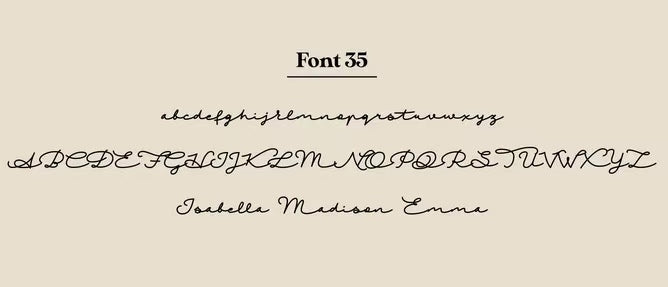 Font 35
abcdefghijklmnopqrstuvwxyz
ABCDEFGHIJKLMNOPQRSTUVWXYZ
Isabella Madison Emma